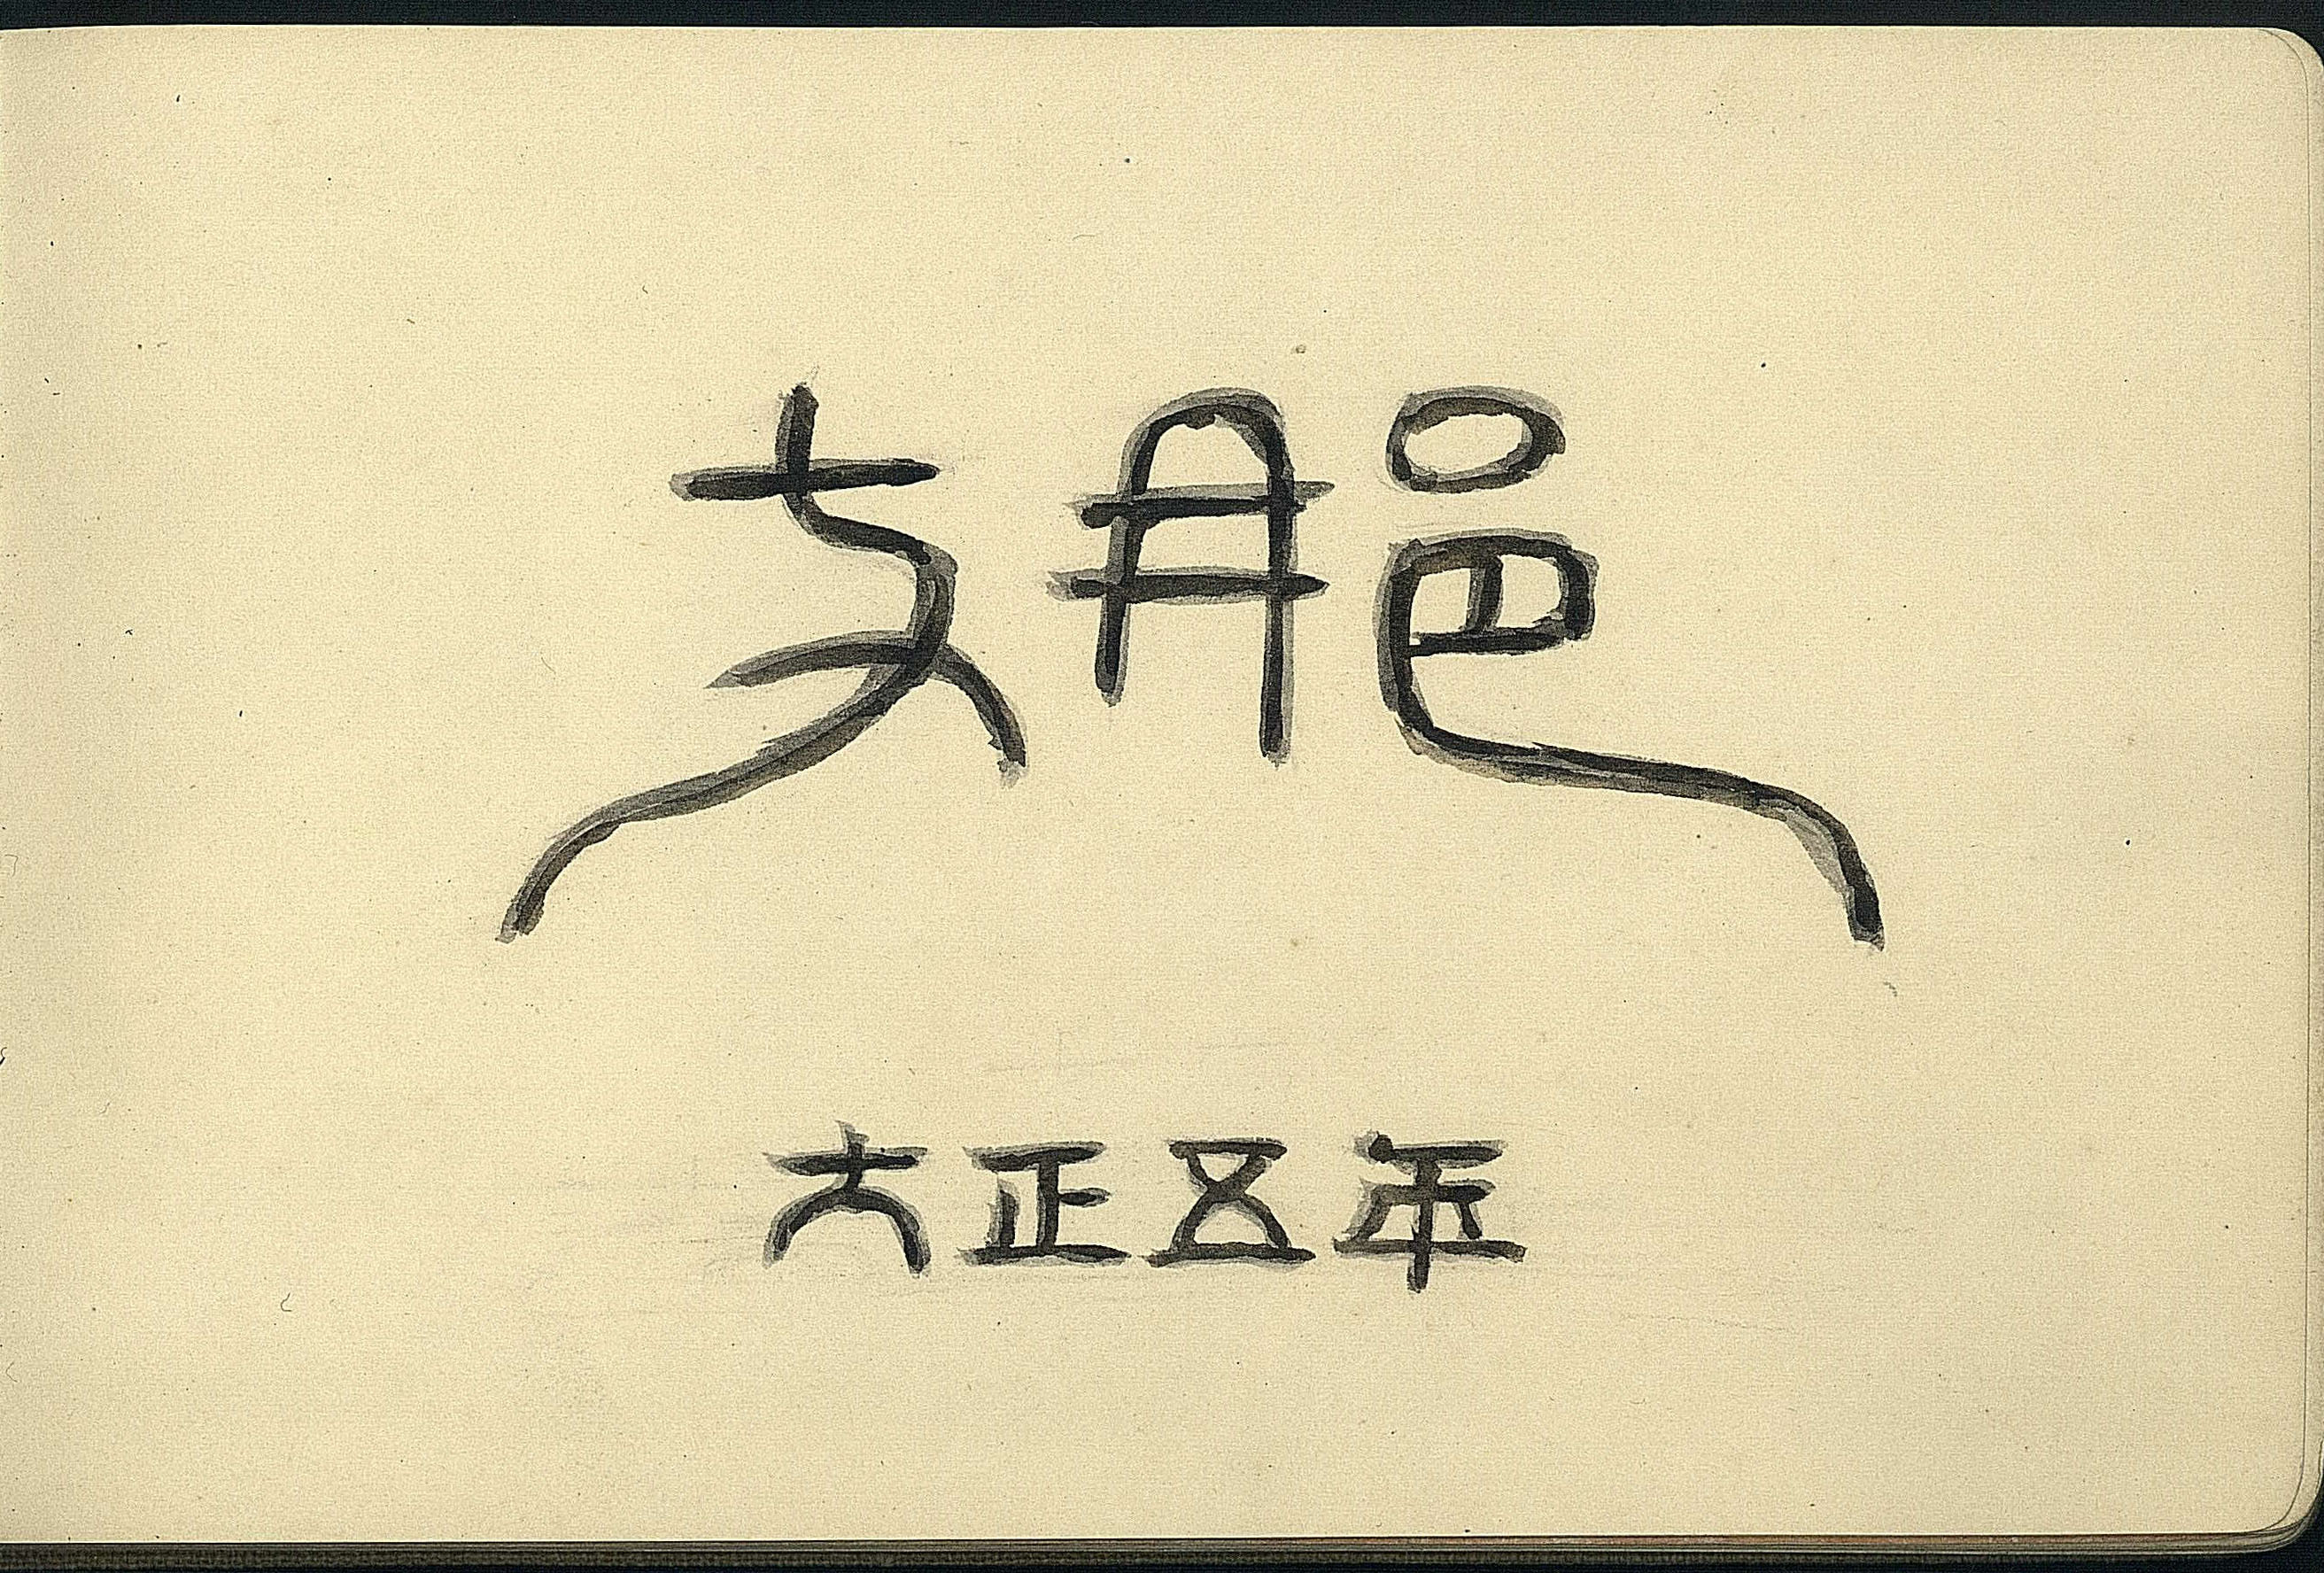 支那
大正五年